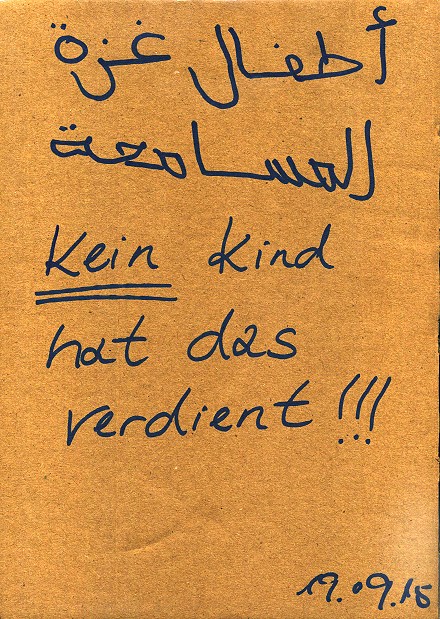 أطفال غزة
المسامحة
Kein Kind
hat das
verdient !!!